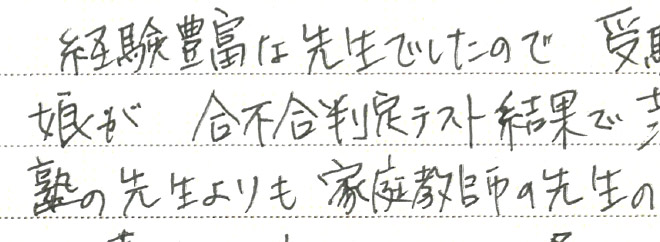 経験豊富な先生でしたので 受
娘が 合不合判定テスト結果で
塾の先生よりも 家庭教師の先生の